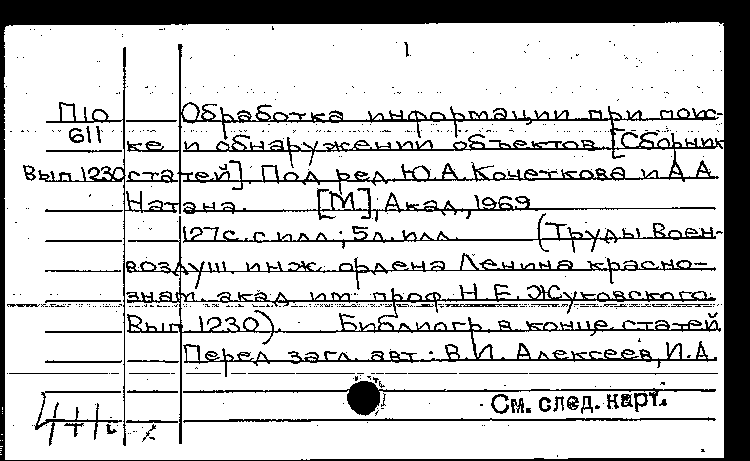 1
П10 Обработка информации при поис-
611
ке и обнаружении объектов. [Сборник
Вып.1230 статей]. Под ред. Ю.А. Кочеткова и А.А.
Натана. [М], Акад., 1969
127с. с илл.; 5л. илл. (Труды Воен-
воздуш. инж. ордена Ленина красно-
знам. акад. им. проф. Н.Е. Жуковского.
Вып. 1230). Библиогр. в конце статей
Перед загл. авт.: В.И. Алексеев, И.А.
См. след. карт.